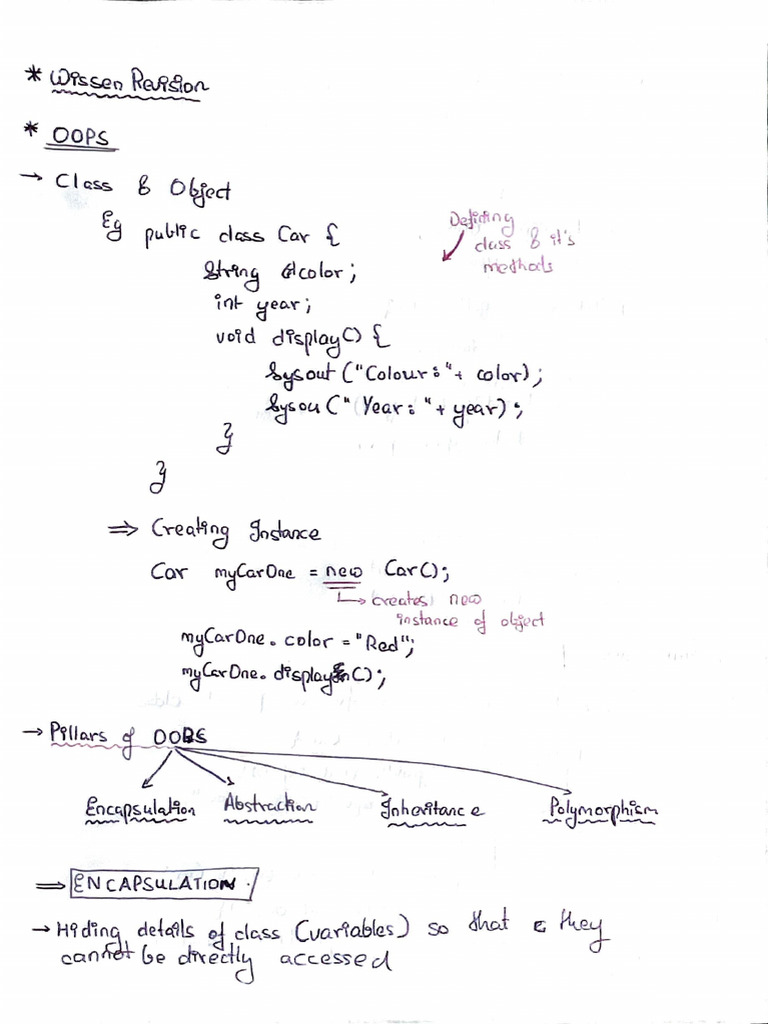 * Wissen Revision
* OOPS
→ Class & Object
Eg public class Car {
Defining
class & it's
methods
String color;
int year;
void display() {
Sysout ("Colour:"+ color);
Sysou (" Year: "+ year);
}
}
⇒ Creating Instance
Car myCarOne = new Car();
→ creates new
instance of object
myCarOne. color = "Red";
myCarOne. display();
→ Pillars of OOPS
Encapsulation Abstraction Inheritance Polymorphism
⇒ ENCAPSULATION.
→ Hiding details of class (variables) so that they
cannot be directly accessed